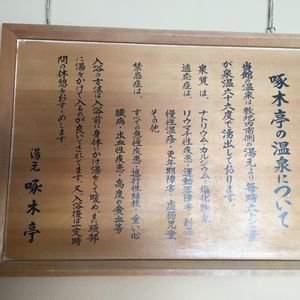 啄木亭の温泉について
当館の温泉は敷地南側の湯元より毎時
が泉温六十六度で湧出しております。
泉質は、ナトリウム・カルシウム-塩化物泉
適応症は、リウマチ性疾患・運動器障害・創傷
慢性湿疹・更年期障害・虚弱児童
その他
禁忌症は、すべての急性疾患・進行性結核・重い心
臓病・出血性疾患・高度の貧血等
入浴の方法は入浴前に身体にかけ湯をして暖め、また頭部
に湯をかけて入るのが良いとされてます。又入浴後は一定時
間の休憩をおすすめします。
湯元 啄木亭